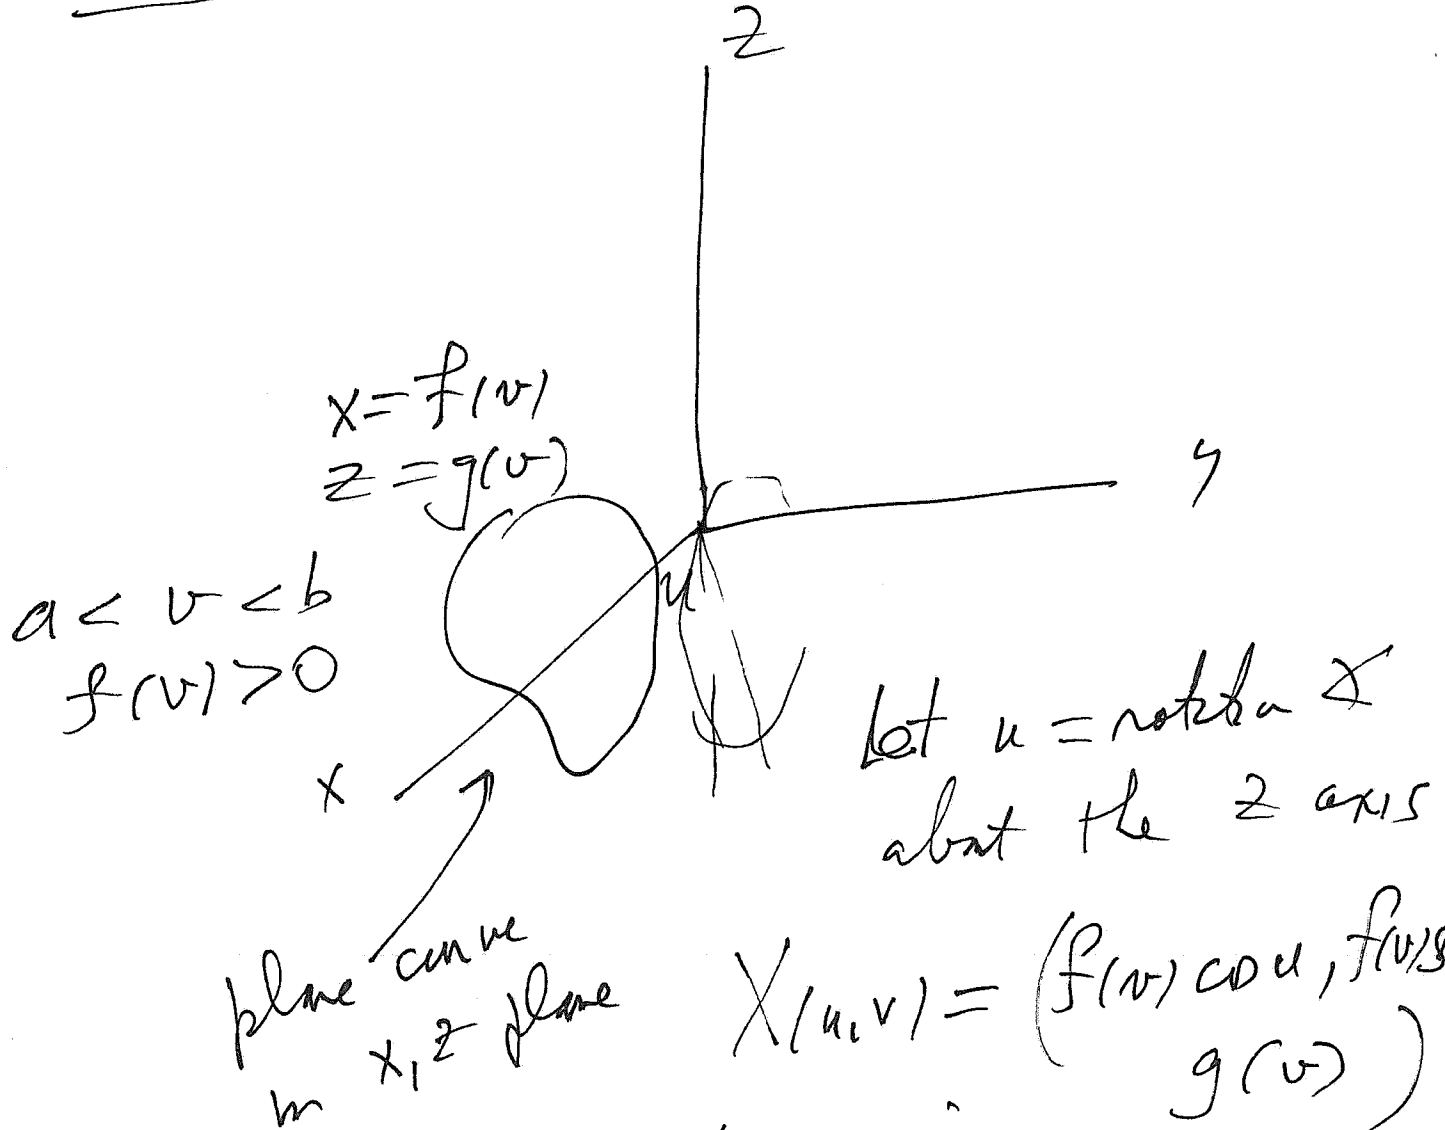 z
x = f(v)
z = g(v)
y
a < v < b
f(v) > 0
u
x
Let u = rotation ∠
about the z axis
plane curve
in x, z plane
X(u, v) = (f(v) cos u, f(v) s
g(v))